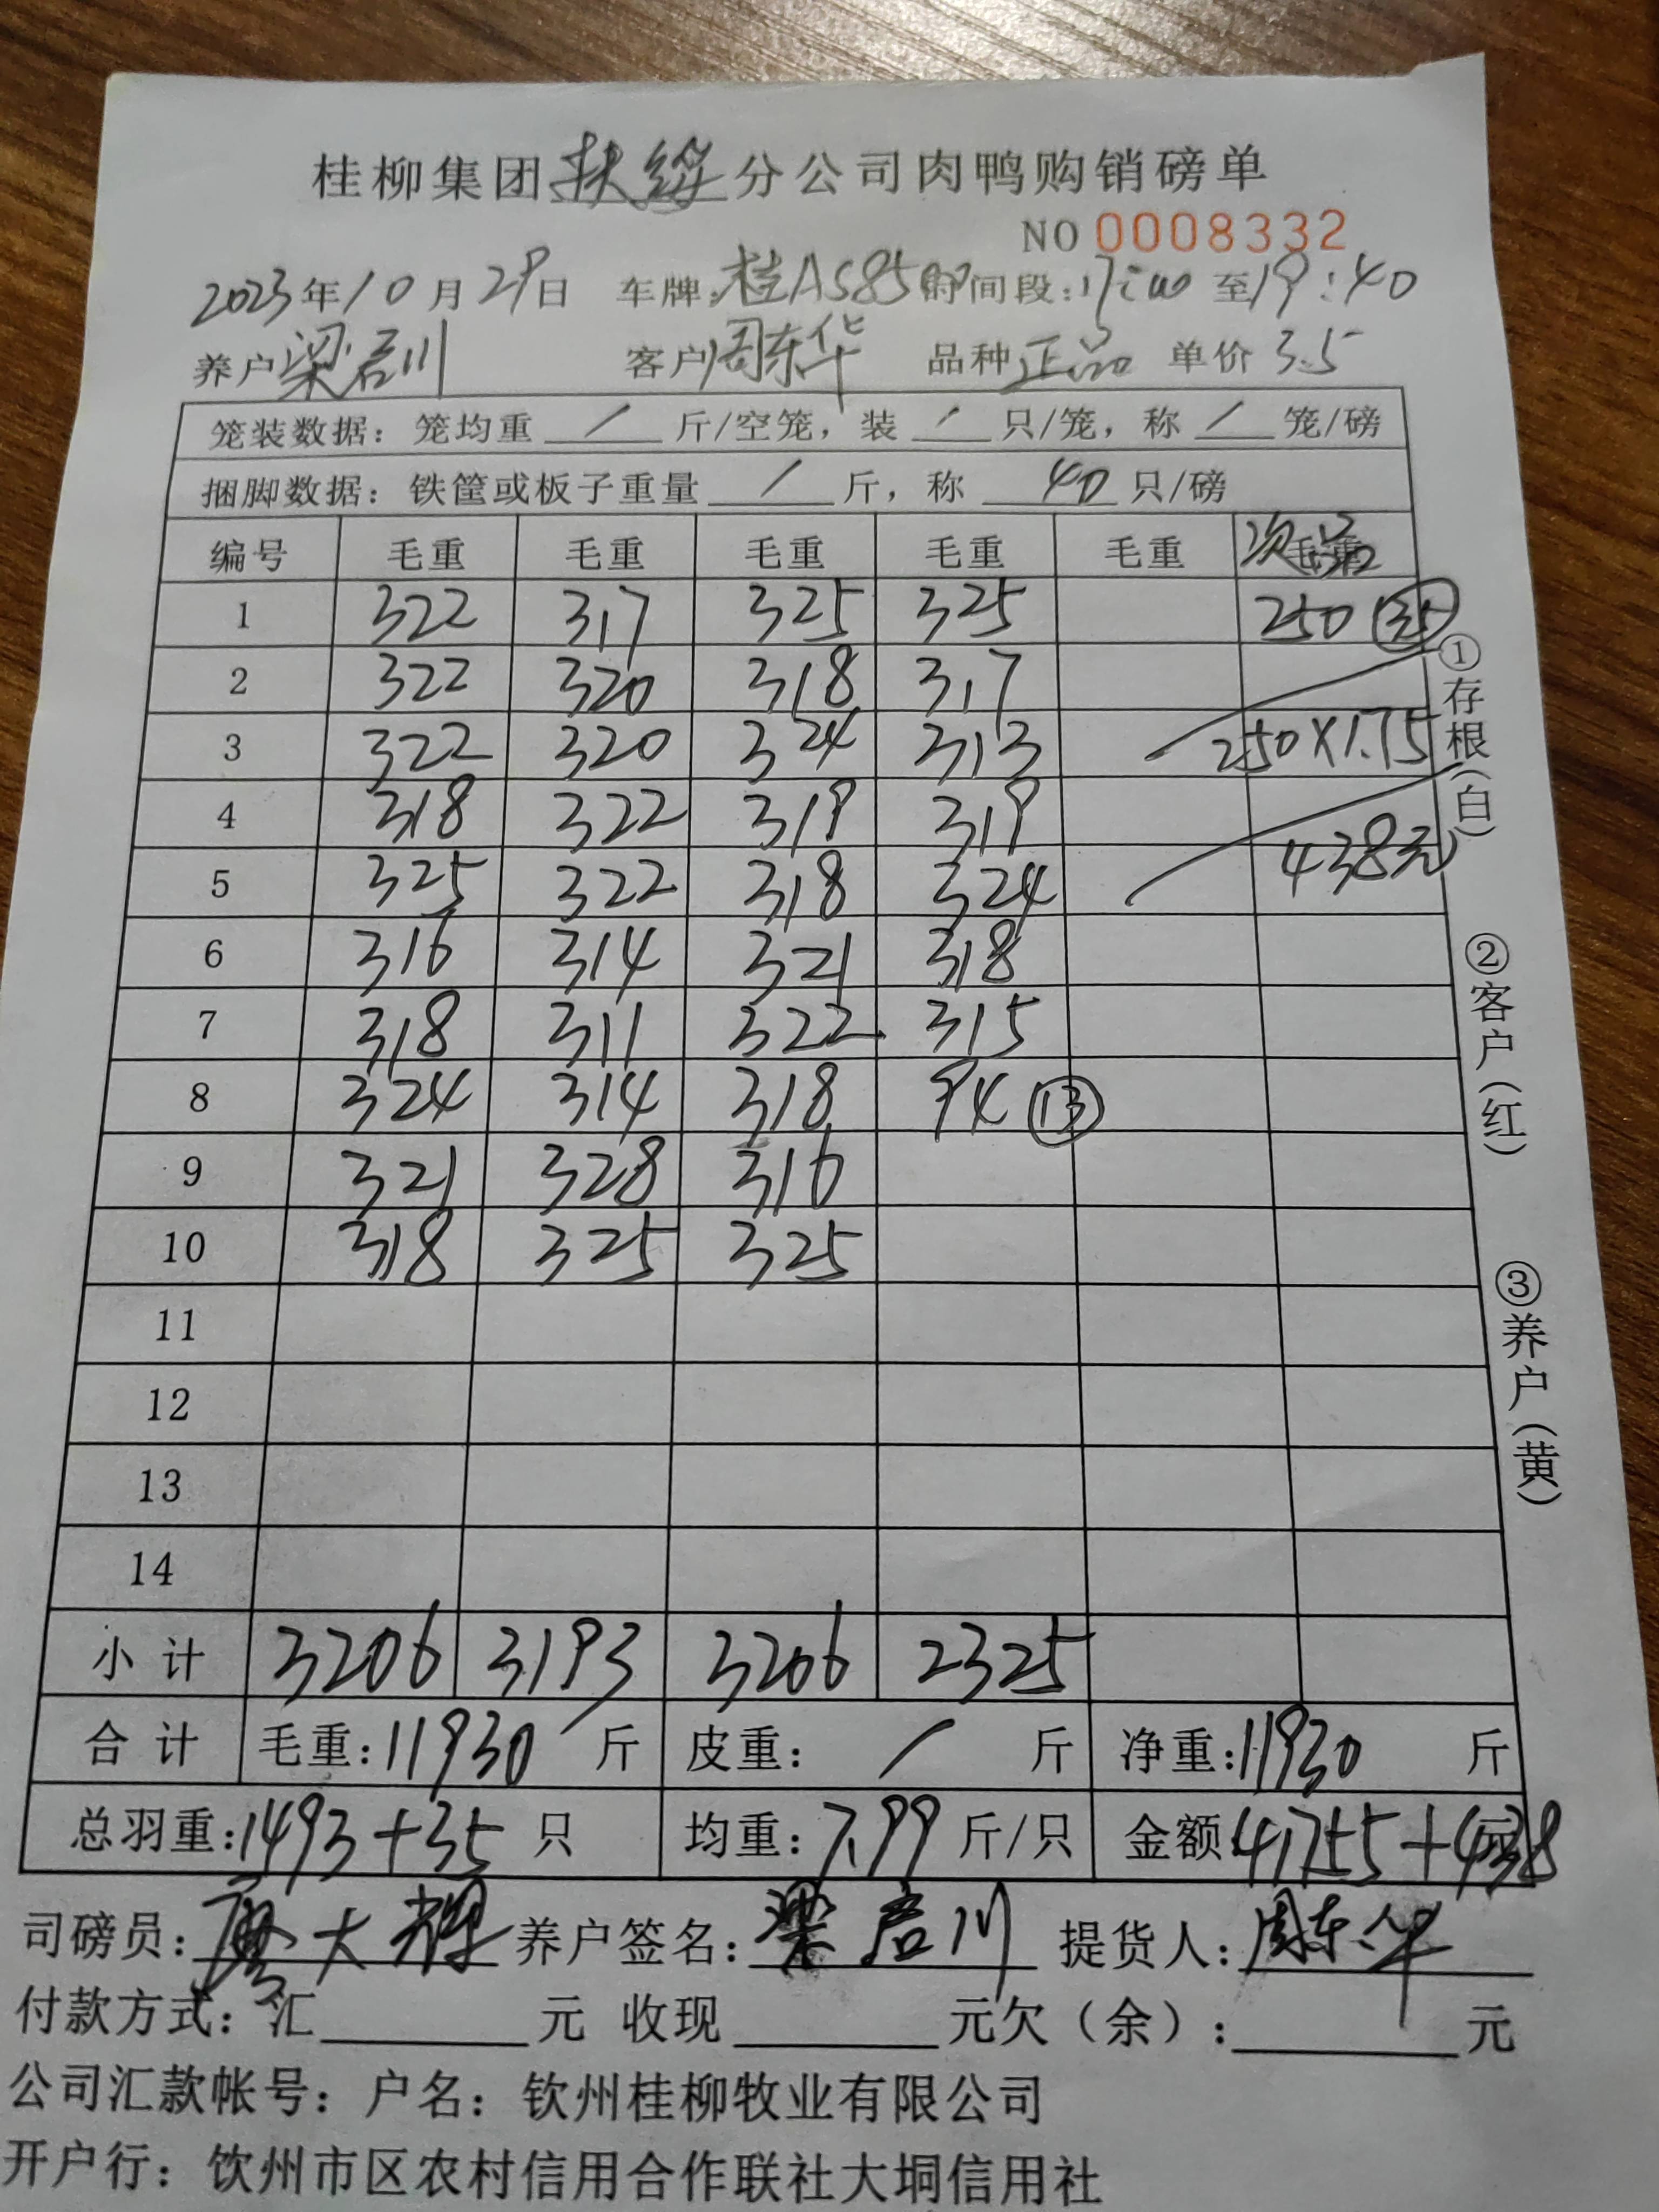 桂柳集团扶绥分公司肉鸭购销磅单
NO 0008332
2023年10月29日 车牌:桂AS85 时间段:17:00 至19:40
养户梁君川 客户周东华 品种正品 单价3.5
笼装数据:笼均重 / 斤/空笼,装 / 只/笼,称 / 笼/磅
捆脚数据:铁筐或板子重量 / 斤,称 40 只/磅
编号 毛重 毛重 毛重 毛重 毛重 毛重 次品
1 322 317 325 325 250 35
2 322 320 318 317
3 322 320 324 313 250×1.75
4 318 322 319 319
5 325 322 318 324 438元
6 316 314 321 318
7 318 311 322 315
8 324 314 318 94 13
9 321 328 316
10 318 325 325
11
12
13
14
小计 3206 3193 3206 2325
合计 毛重:11930 斤 皮重: / 斤 净重:11930 斤
总羽重:1493+35 只 均重:7.99 斤/只 金额:41755+438
司磅员:廖大辉 养户签名:梁君川 提货人:周东华
付款方式:汇 元 收现 元欠(余): 元
公司汇款帐号:户名:钦州桂柳牧业有限公司
开户行:饮州市区农村信用合作联社大垌信用社
①存根(白)
②客户(红)
③养户(黄)